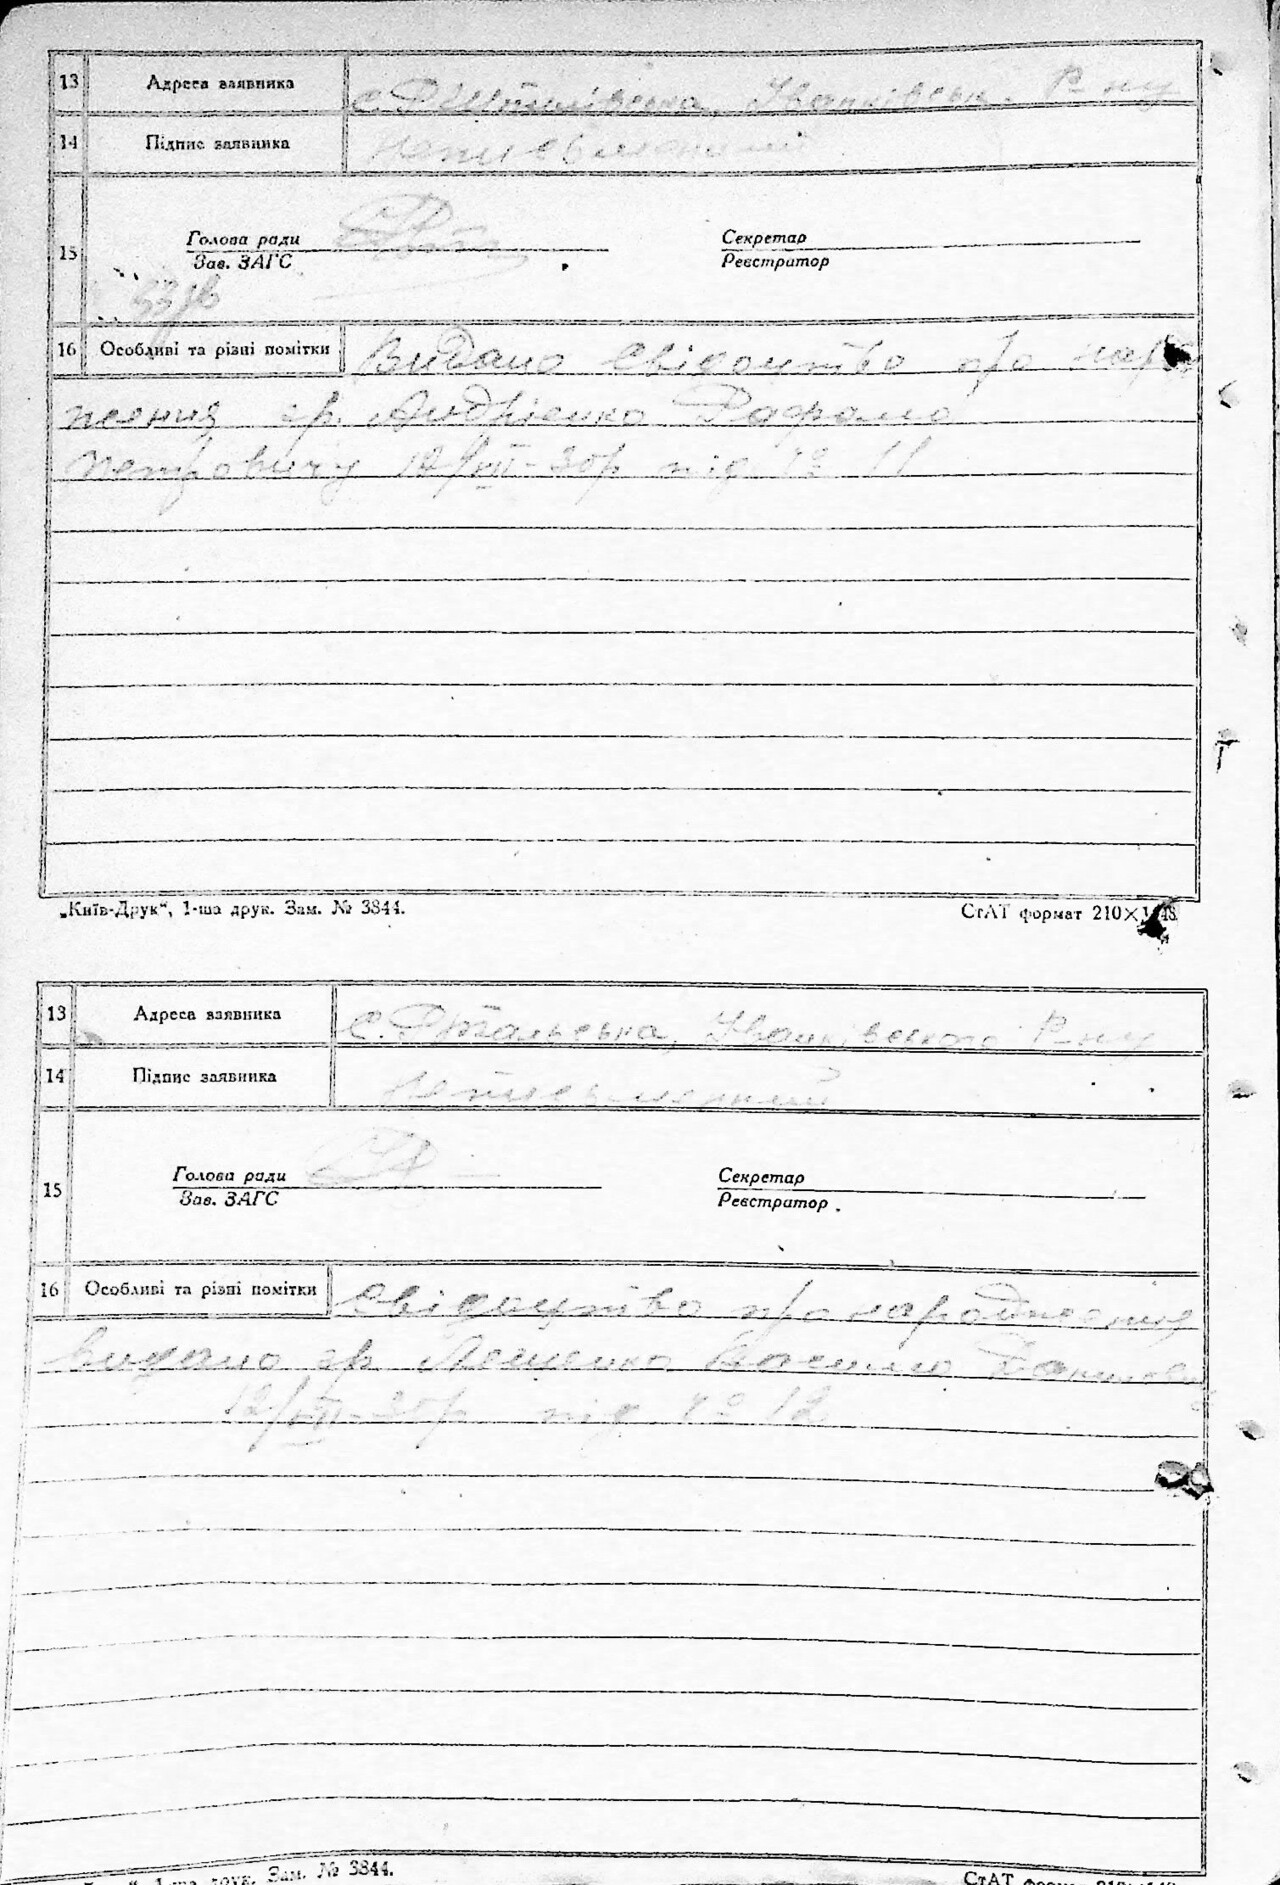 13 Адреса заявника с. Іванківськ. Р-ну
14 Підпис заявника неписьменний
15 Голова ради Секретар
Зав. ЗАГС Реєстратор
16 Особливі та різні помітки Видано свідоцтво про
гр. Андрієнко
Петровичу 12/VIII-30р під № 11
„Київ-Друк“, 1-ша друк. Зам. № 3844. СтАТ формат 210×148
13 Адреса заявника с. Іванківського Р-ну
14 Підпис заявника неписьменний
15 Голова ради Секретар
Зав. ЗАГС Реєстратор
16 Особливі та різні помітки Свідоцтво про народження
видано гр.
12/VIII-30р під № 12
1-ша друк. Зам. № 3844. СтАТ